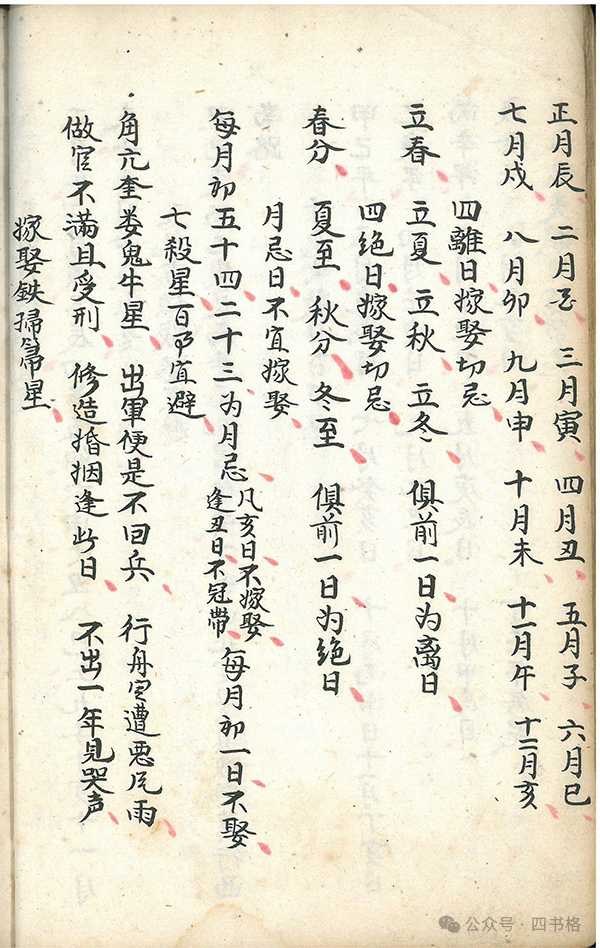 正月辰 二月 三月寅 四月丑 五月子 六月巳
七月戌 八月卯 九月申 十月未 十一月午 十二月亥
四離日嫁娶切忌
立春 立夏 立秋 立冬 俱前一日为离日
四绝日嫁娶切忌
春分 夏至 秋分 冬至 俱前一日为绝日
月忌日不宜嫁娶
每月初五十四二十三为月忌 凡亥日不嫁娶 逢丑日不冠帶 每月初一日不娶
七殺星百事宜避
角亢奎娄鬼牛星 出軍便是不回兵 行舟定遭悪风雨
做官不滿且受刑 修造婚姻逢此日 不出一年見哭声
嫁娶鉄掃箒星
公众号·四书格